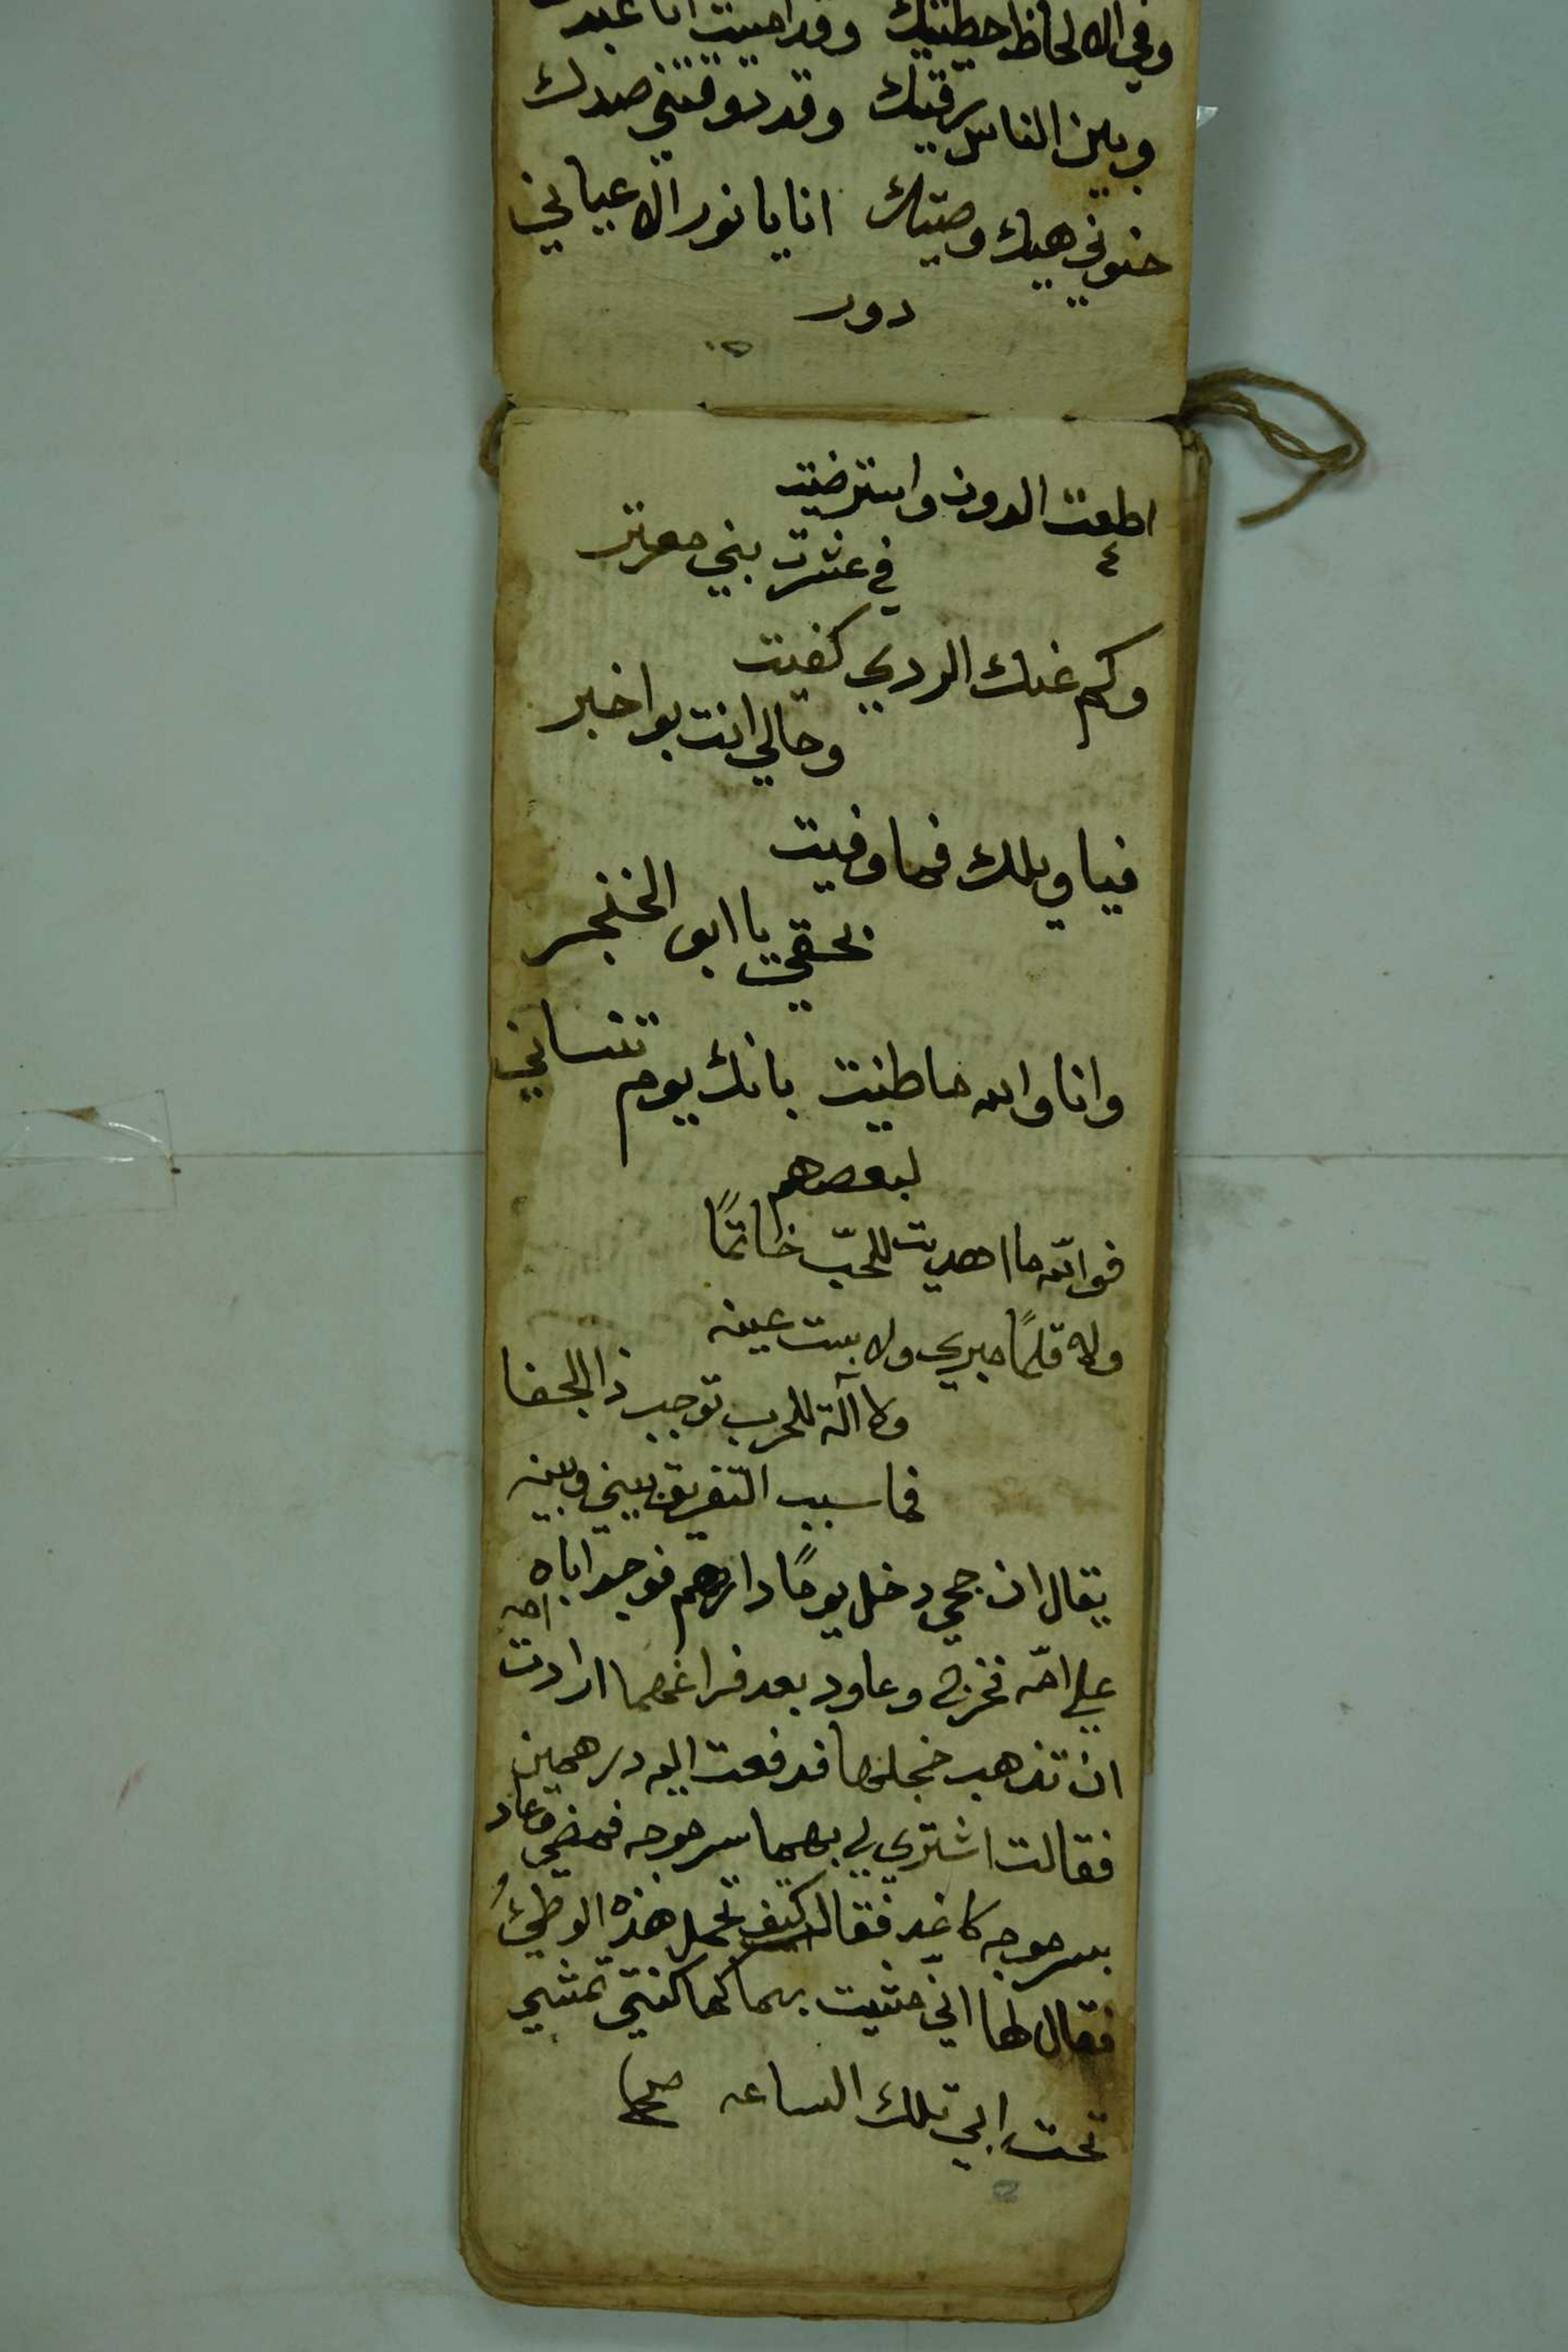 وفي الالحاظ حطيتك وقد امسيت انا عبدك
وبين الناس رقيتك وقد دوقتني صدك
خنوني هيك وصيتك انا يا نور الاعياني
دور
اطعت الدون واسترضيت
في عشرت بني معرتر
وكم عنك الردي كفيت
وحالي انت بو اخبر
فيا ويلك فما وفيت
بحقي يا ابو الخنجر
وانا والله ما طنيت بانك يوم تنساني
لبعضهم
فوالله ما اهديت للحبّ خاتمًا
ولا قلمًا مبري ولا بست عينه
ولا آلة للحرب توجب ذا الجفا
فما سبب التفريق بيني وبينه
يقال ان جحي دخل يومًا دارهم فوجد اباه
على امّه فخرج وعاود بعد فراغهما ارادت امه
ان تذهب خجلها فدفعت اليه درهمين
فقالت اشتري لي بهما سرموجه فمضى وعاد
بسرموجه كاغد فقال كيف تحمل هذه الوطئُ
فقال لها انّي مشيت بهما كما كنتي تمشي
تحت ابي تلك الساعه صح